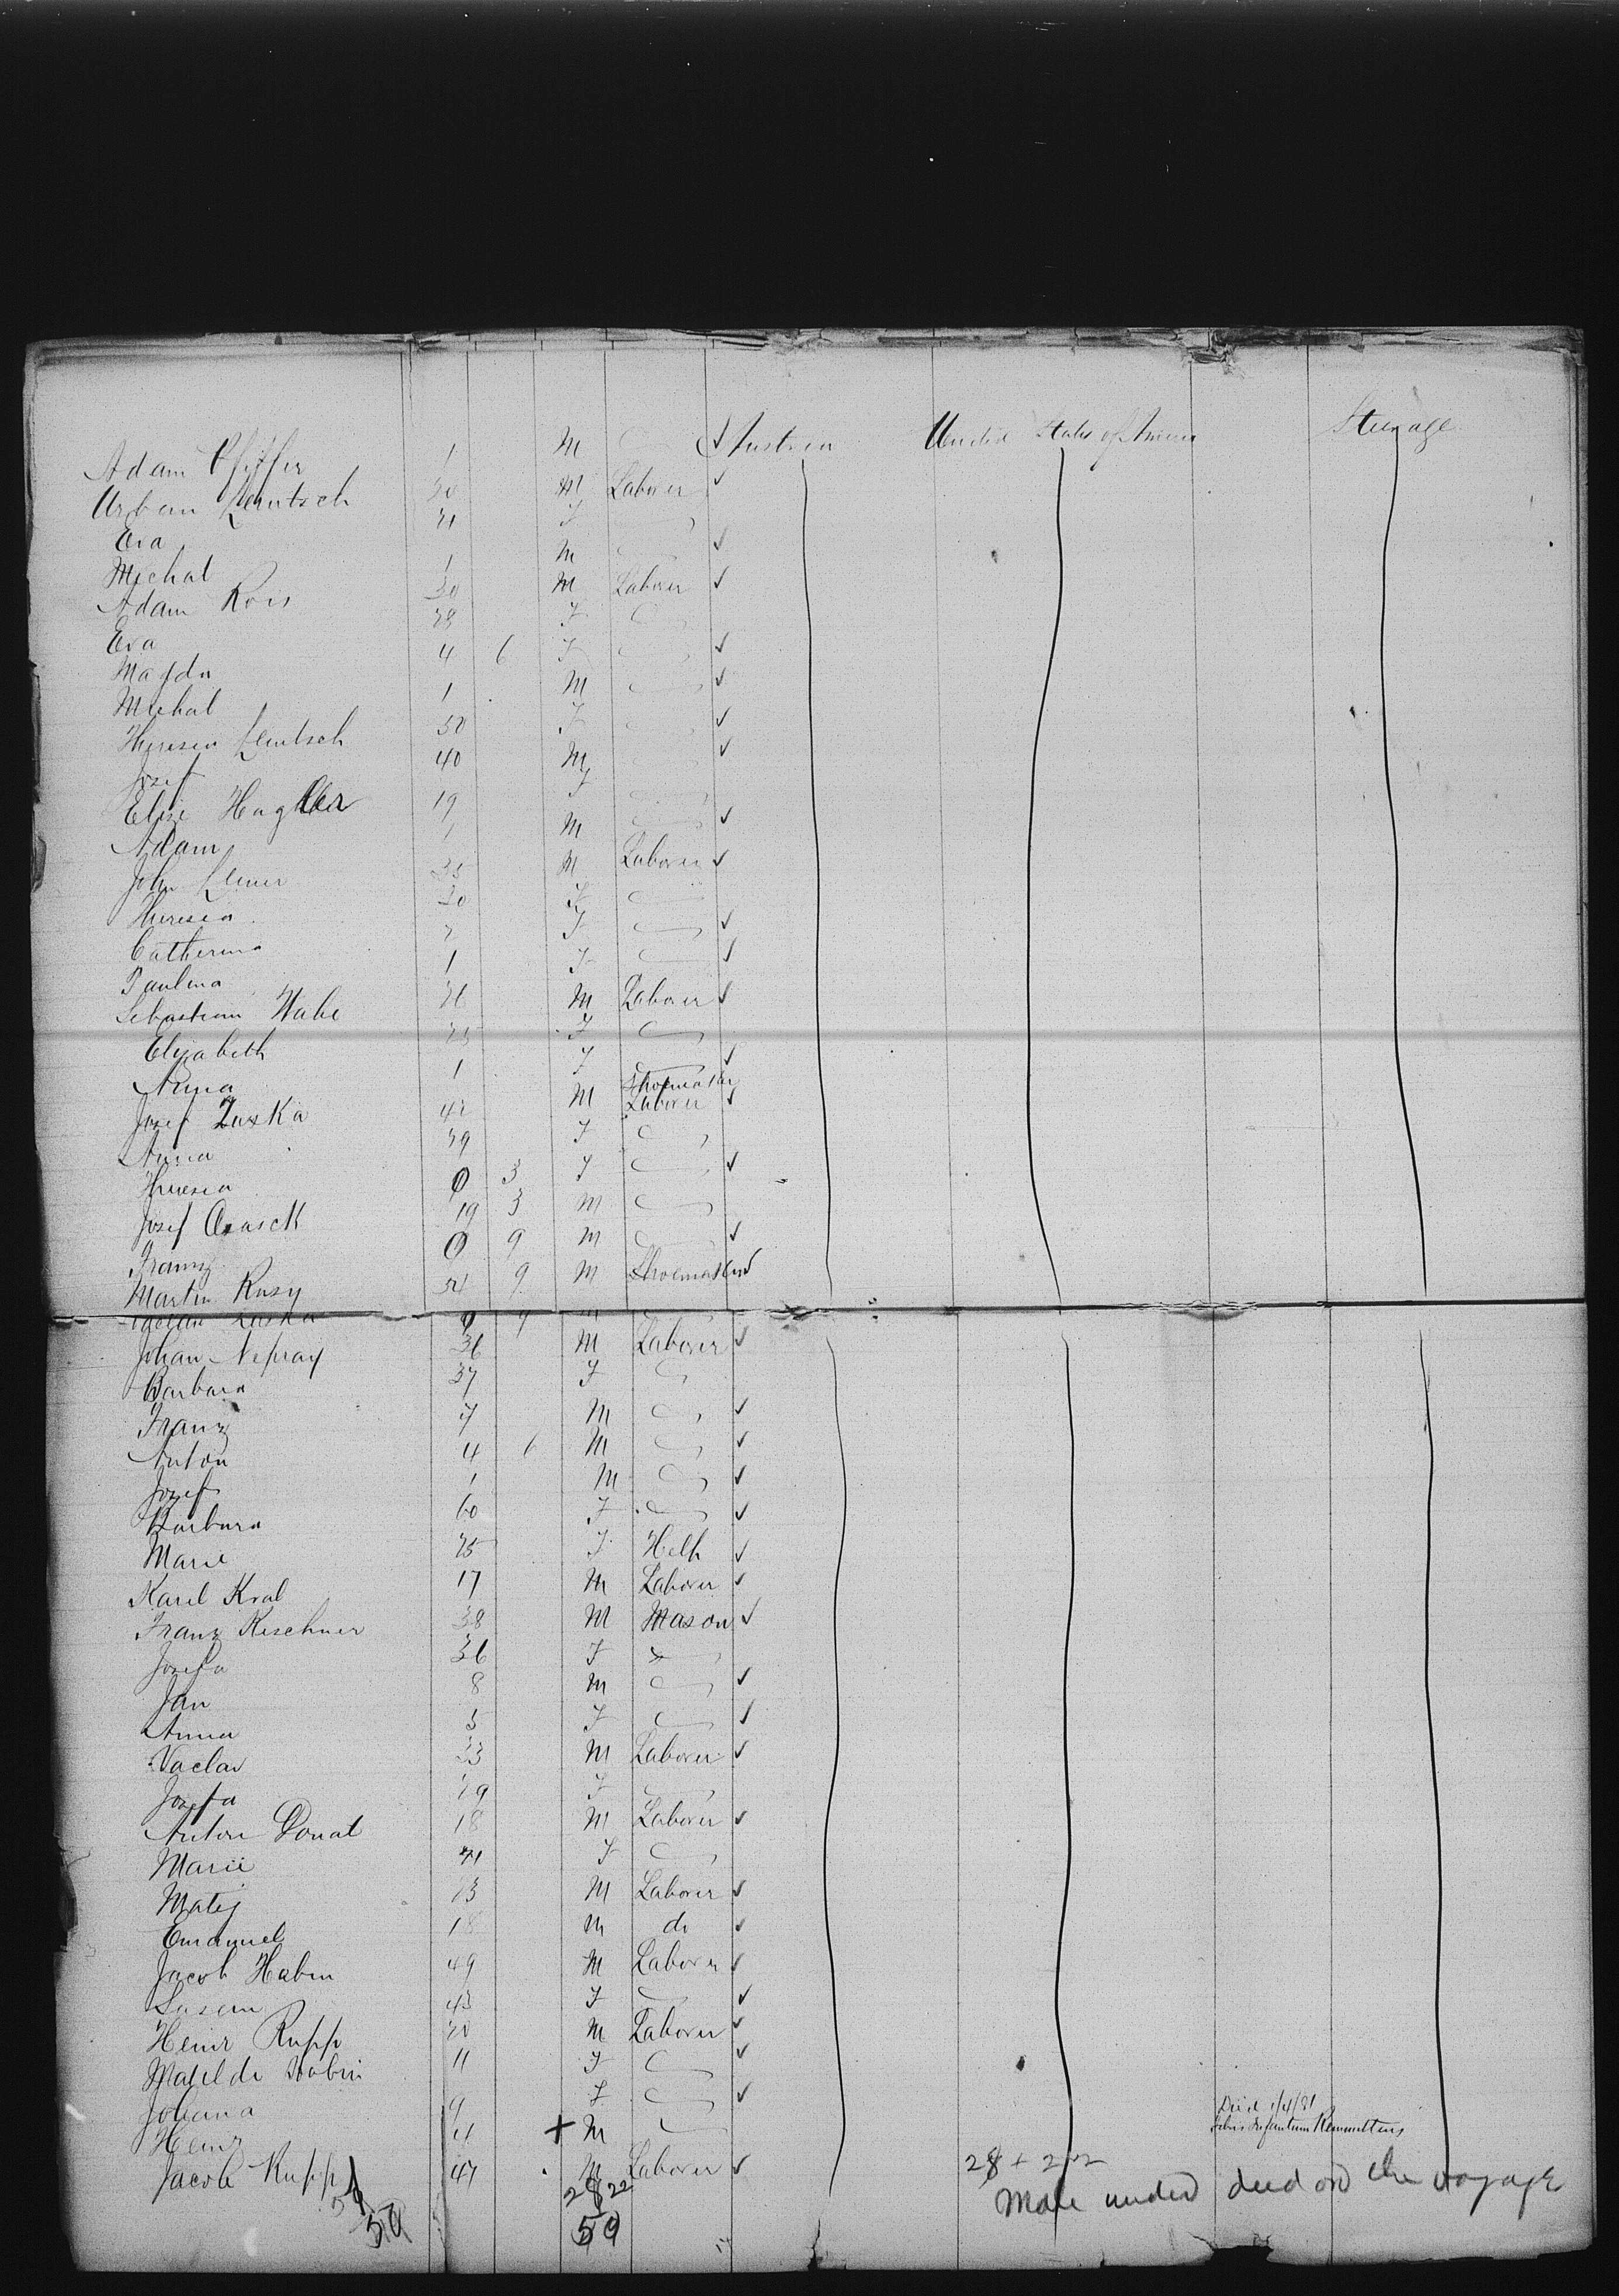 Adam Pfiffer 1 M Austria United States of America Steerage
Urban Lentsch 30 M Laborer
Eva 31 F
Michal 1 M
Adam Rois 30 M Laborer
Eva 38 F
Magda 4 6 F
Michal 1 M
Theresia Lentsch 50 F
Josef 40 M
Elise Hagller 19 F
Adam 1 M
John 35 M Laborer
Theresia 30 F
Catherina F
Paulina 1 F
Sebastian Wabe 36 M Laborer
Elizabeth 35 F
Anna 1 F
Josef Zuska M Shoemaker Laborer
Anna 39 F
Theresia 0 3 F
Josef 19 3 M
Franz 0 9 M
Martin Rusy 54 9 M Shoemaker
Zuska 0 9 M
Johan Nepray 36 M Laborer
Barbara 37 F
Franz 7 M
Anton 4 6 M
Josef 1 M
Barbara 60 F
Marie 25 F Help
Karel Kral 17 M Laborer
Franz Kirschner 38 M Mason
Josefa 36 F
Jan 8 M
Anna 5 F
Vaclav 33 M Laborer
Josefa 29 F
Anton Donat 18 M Laborer
Marie F
Matej 23 M Laborer
Emanuel 18 M do
Jacob Habin 49 M Laborer
Susan 43 F
Heinr Rupp 20 M Laborer
Matilde Habin 11 F
Johana 9 F Died 1/4/81
Heinr + M Febris Infantum Remittens
Jacob Rupp 47 M Laborer
28 22 28 + 22
Male died on the voyage
59 59